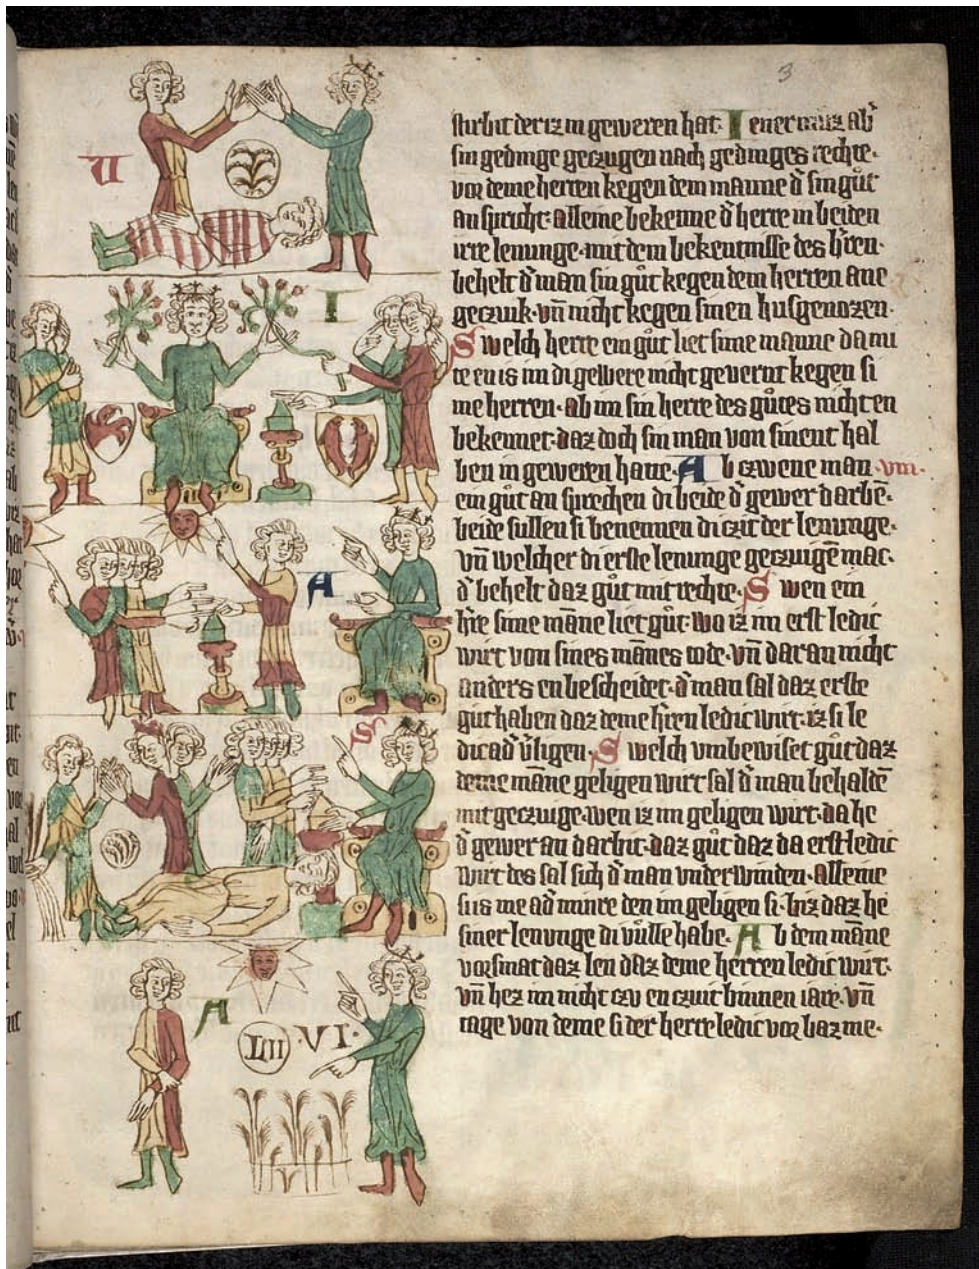 3
stirbit der iz in geweren hat. I ener muz ab̄
sin gedinge geczugen nach gedinges rechte.
vor deme herren kegen dem manne d̄ sin gůt
an spricht. alleine bekenne d̄ herre in beiden
irre lenunge. mit dem bekentnisse des h̄ren.
behelt d̄ man sin gůt kegen dem herren ane
geczuk. vn̄ nicht kegen sinen husgenozen.
S welch herre ein gůt liet sime manne da mi
te en is im di gewere nicht geverut kegen si
me herren. ab im sin herre des gůtes nicht en
bekennet. daz doch sin man von sinent hal
ben in geweren hatte. A b czwene man vm.
ein gůt an sprechen di beide d̄ gewer darbē.
beide sullen si benennen di czit der lenunge.
vn̄ welcher di erste lenunge geczuigē mac.
d̄ behelt daz gůt mit rechte. S wen ein
h̄re sime māne liet gůt wo iz im erst ledic
wirt von sines mānes tode. vn̄ dar an nicht
anders en bescheidet. d̄ man sal daz erste
gut haben daz deme h̄ren ledic wirt. iz si le
dic ad̄ v̄ligen. S welch vmbewiset gůt daz
deme māne geligen wirt sal d̄ man behaldē
mit geczuige. wen iz im geligen wirt. da he
d̄ gewer an darbit. daz gůt daz da erst ledic
wirt des sal sich d̄ man vnderwinden. alleine
si is me ad̄ minre den im geligen si. biz daz he
siner lenunge di vůlle habe. A b dem māne
vorsmat daz len daz deme herren ledic wirt.
vn̄ hez im nicht czu en czuit binnen iare. vn̄
tage von deme si der herre ledic vor baz me.
U
I
A
S
A
LII .VI.